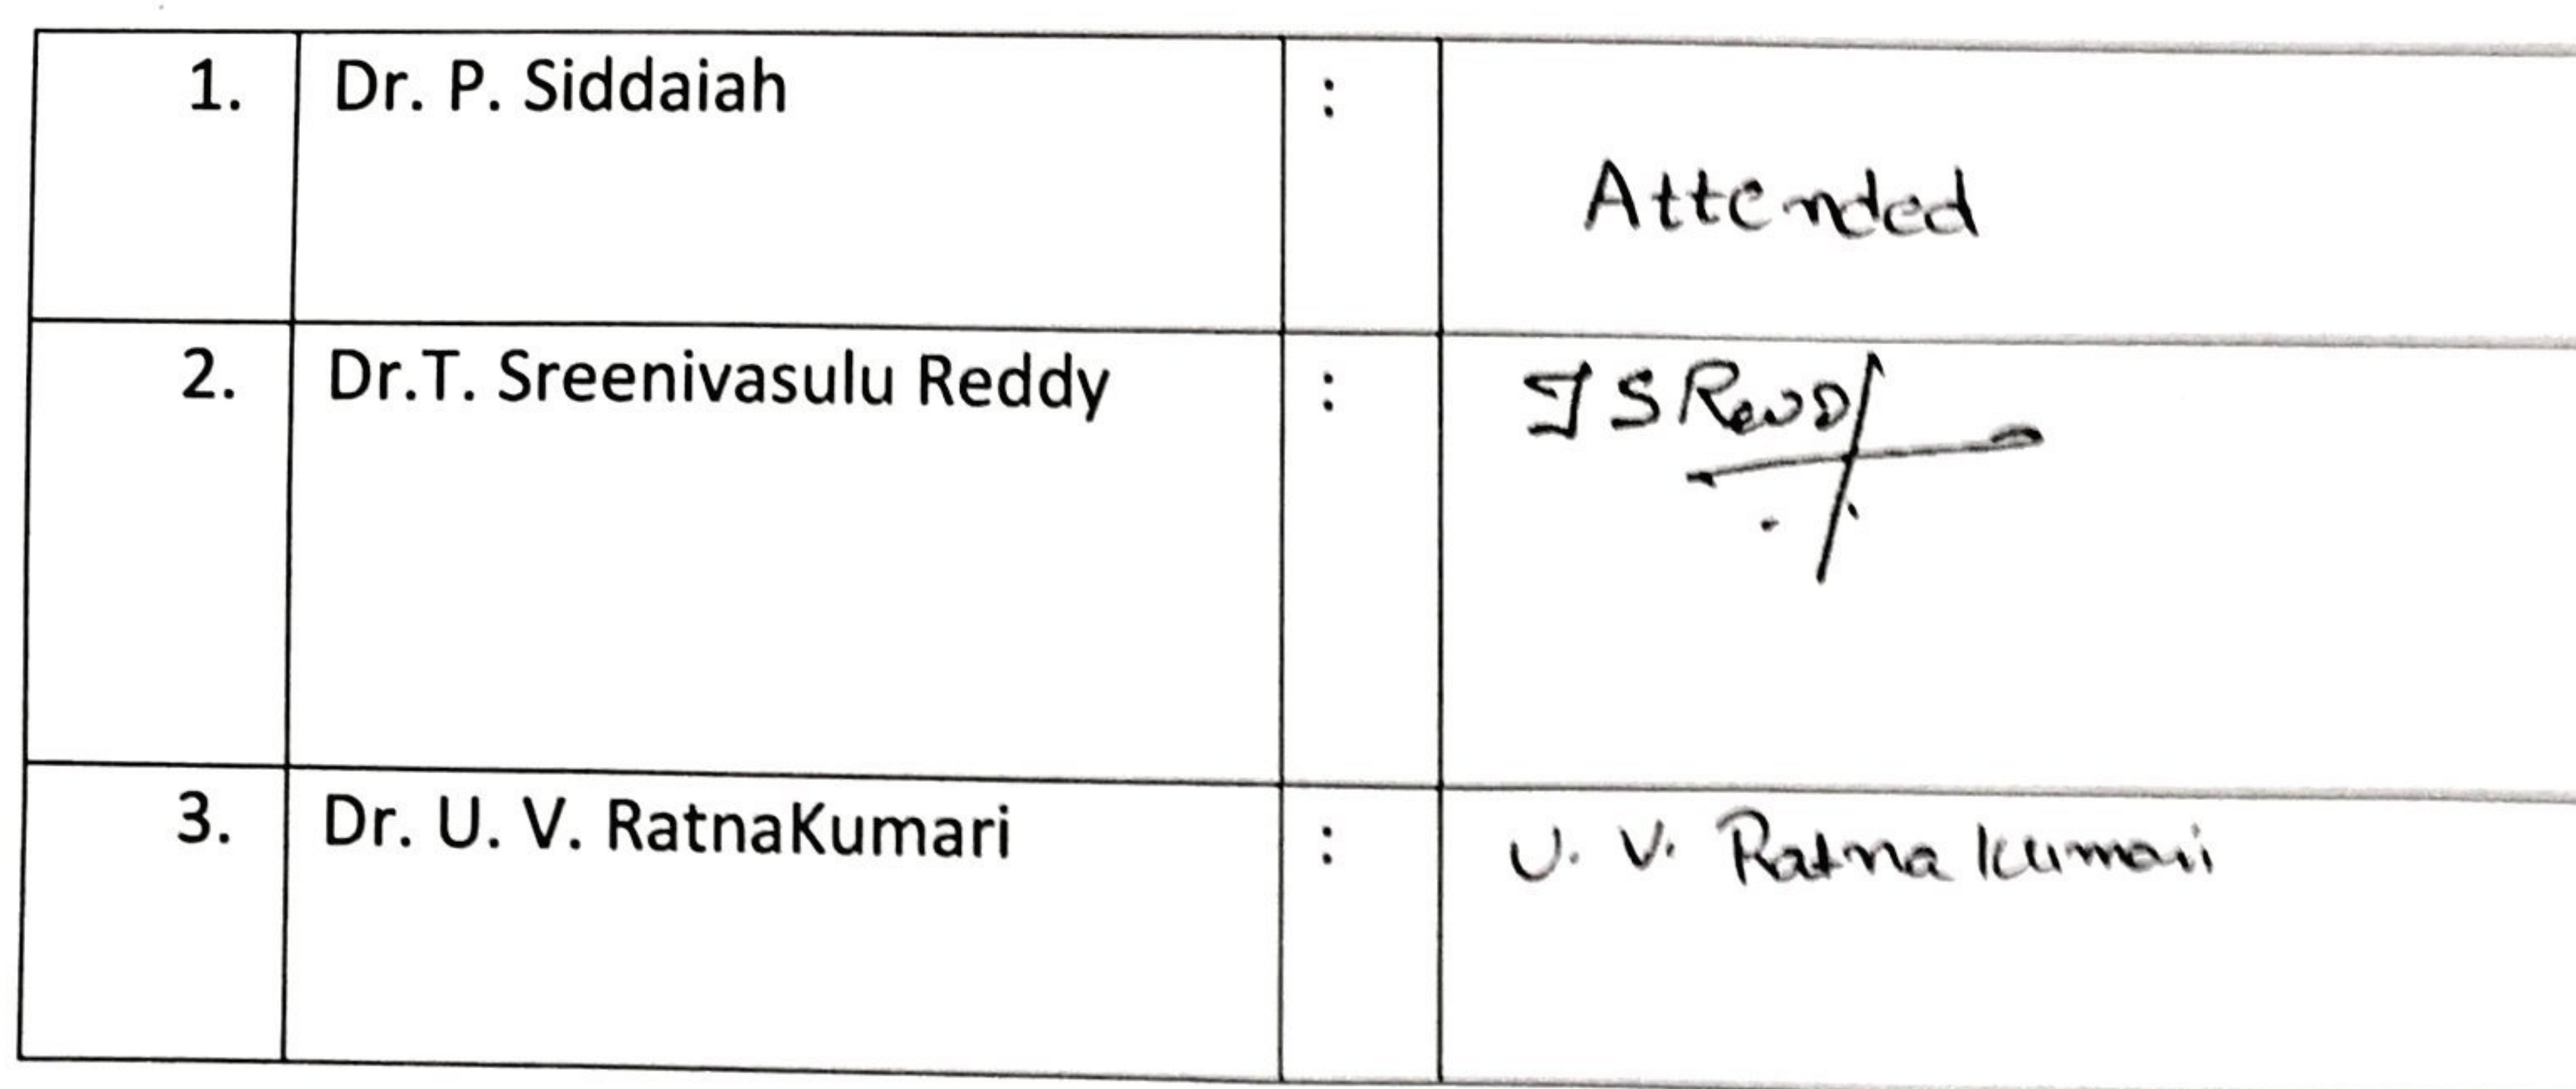 1. Dr. P. Siddaiah : Attended
2. Dr.T. Sreenivasulu Reddy : T S Reddy
3. Dr. U. V. RatnaKumari : U. V. Ratna Kumari